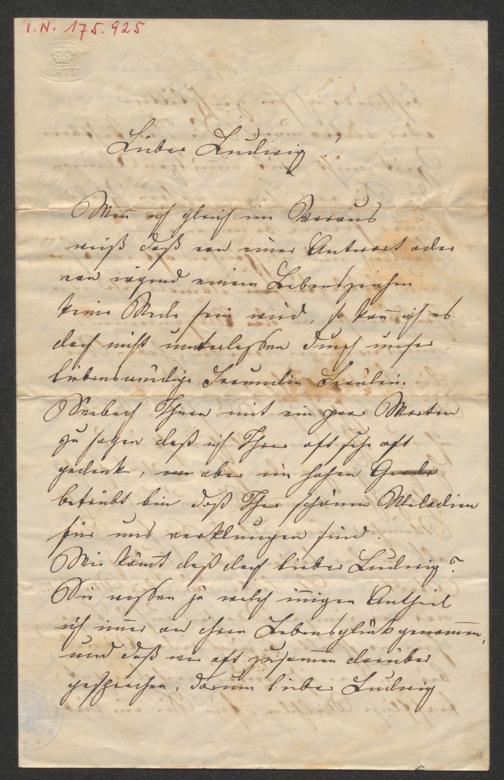 I.N. 175.925
BATH
Lieber Ludwig!
Wenn ich gleich im Voraus
weiß daß von einer Antwort oder
von irgend einem Lebenszeichen
keine Rede sein wird, so kann ich es
doch nicht unterlassen durch unser
liebenswürdige Freundin Fräulein
Seebach Ihnen mit ein paar Worten
zu sagen daß ich Ihrer oft sehr oft
gedenke, aber im hohen Grade
betrübt bin daß Ihre schönen Melodien
für uns verklungen sind.
Wie kömt daß doch lieber Ludwig?
Sie wissen ja welch innigen Antheil
ich immer an ihrem Lebensglük genommen,
und daß wir oft zusammen darüber
gesprochen, darum lieber Ludwig